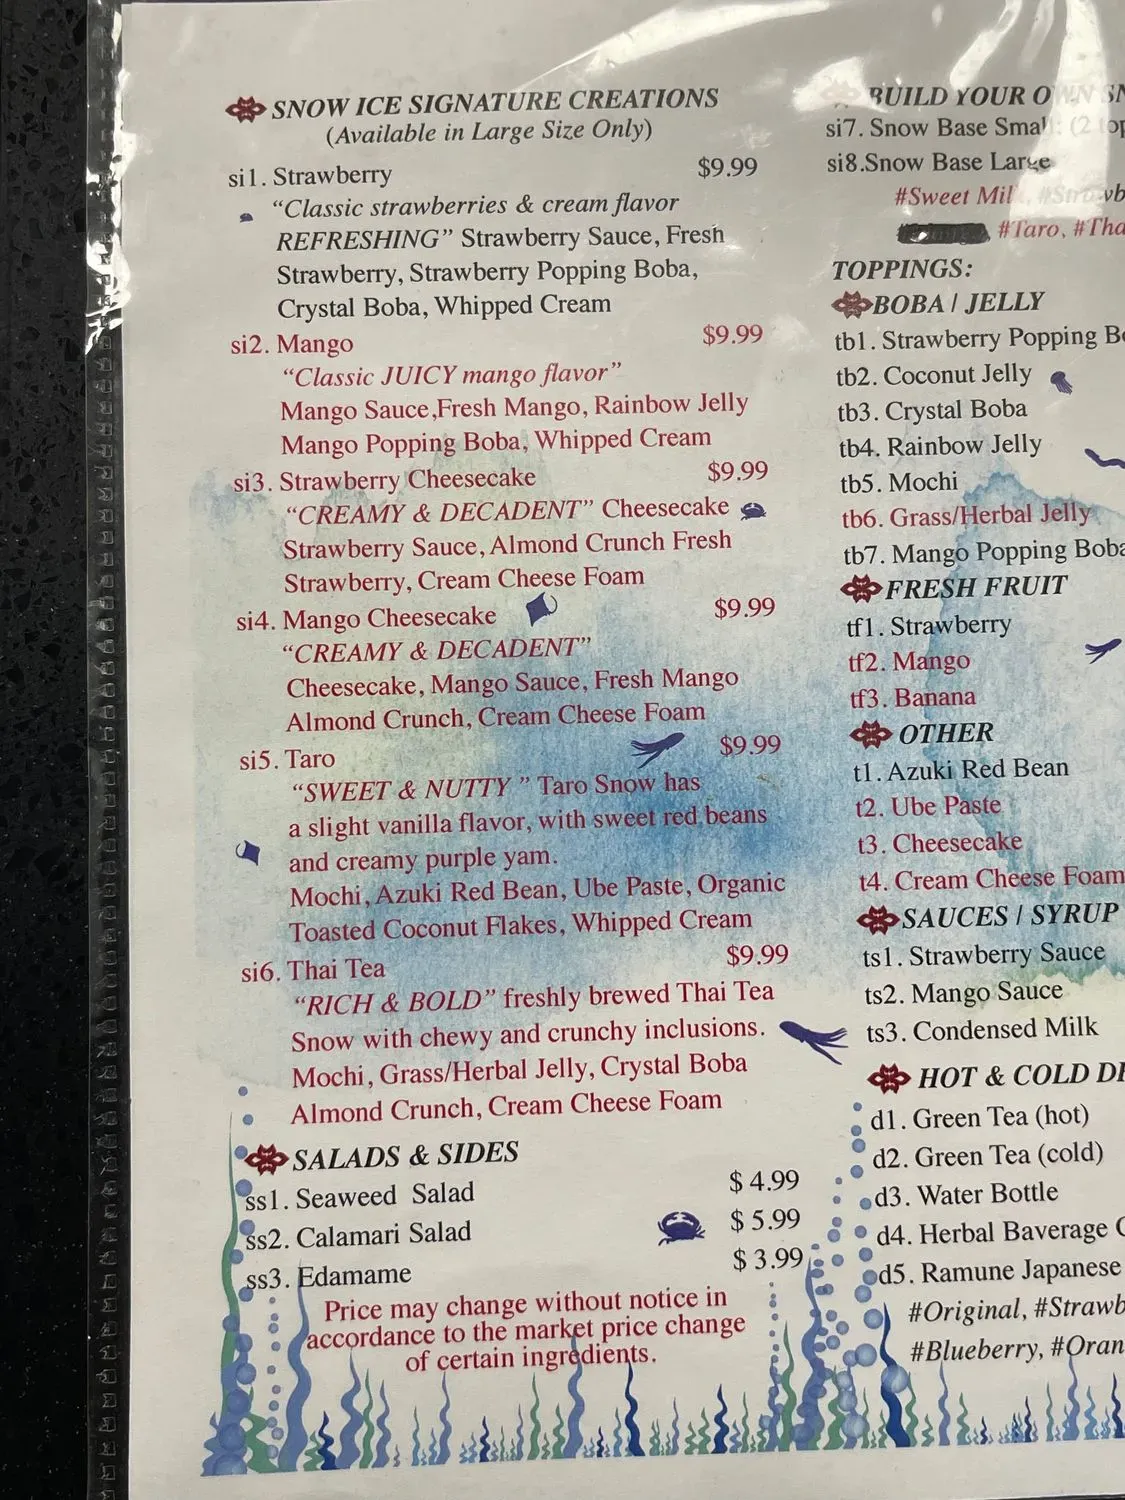 SNOW ICE SIGNATURE CREATIONS
(Available in Large Size Only)
si1. Strawberry $9.99
“Classic strawberries & cream flavor
REFRESHING” Strawberry Sauce, Fresh
Strawberry, Strawberry Popping Boba,
Crystal Boba, Whipped Cream
si2. Mango $9.99
“Classic JUICY mango flavor”
Mango Sauce,Fresh Mango, Rainbow Jelly
Mango Popping Boba, Whipped Cream
si3. Strawberry Cheesecake $9.99
“CREAMY & DECADENT” Cheesecake
Strawberry Sauce, Almond Crunch Fresh
Strawberry, Cream Cheese Foam
si4. Mango Cheesecake $9.99
“CREAMY & DECADENT”
Cheesecake, Mango Sauce, Fresh Mango
Almond Crunch, Cream Cheese Foam
si5. Taro $9.99
“SWEET & NUTTY ” Taro Snow has
a slight vanilla flavor, with sweet red beans
and creamy purple yam.
Mochi, Azuki Red Bean, Ube Paste, Organic
Toasted Coconut Flakes, Whipped Cream
si6. Thai Tea $9.99
“RICH & BOLD” freshly brewed Thai Tea
Snow with chewy and crunchy inclusions.
Mochi, Grass/Herbal Jelly, Crystal Boba
Almond Crunch, Cream Cheese Foam
SALADS & SIDES
ss1. Seaweed Salad $ 4.99
ss2. Calamari Salad $ 5.99
ss3. Edamame $ 3.99
Price may change without notice in
accordance to the market price change
of certain ingredients.
BUILD YOUR OWN SN
si7. Snow Base Small: (2 top
si8.Snow Base Large
#Sweet Milk, #Strawb
#Taro, #Tha
TOPPINGS:
BOBA / JELLY
tb1. Strawberry Popping Bo
tb2. Coconut Jelly
tb3. Crystal Boba
tb4. Rainbow Jelly
tb5. Mochi
tb6. Grass/Herbal Jelly
tb7. Mango Popping Boba
FRESH FRUIT
tf1. Strawberry
tf2. Mango
tf3. Banana
OTHER
t1. Azuki Red Bean
t2. Ube Paste
t3. Cheesecake
t4. Cream Cheese Foam
SAUCES / SYRUP
ts1. Strawberry Sauce
ts2. Mango Sauce
ts3. Condensed Milk
HOT & COLD DR
d1. Green Tea (hot)
d2. Green Tea (cold)
d3. Water Bottle
d4. Herbal Baverage
d5. Ramune Japanese
#Original, #Strawb
#Blueberry, #Oran